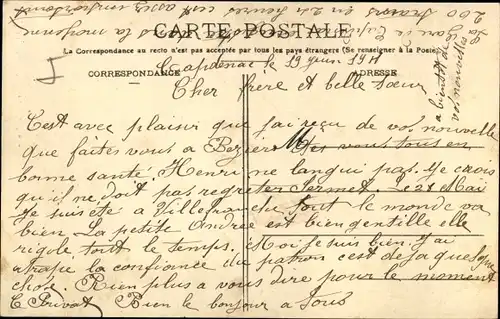 CARTE POSTALE
La Correspondance au recto n'est pas acceptée par tous les pays étrangers (Se renseigner à la Poste)
CORRESPONDANCE
ADRESSE
Capdenac le 19 juin 1911
Cher frère et belle sœur
C'est avec plaisir que j'ai reçu de vos nouvelle
que faites vous a Bezier Etes vous tous en
bonne santé. Henri ne langui pas. Je crois
qu'il ne doit pas regreter Sermet. Le 28 Mai
Je suis été a Villefranche tout le monde va
bien. La petite Andrée est bien gentille elle
rigole tout le temps. Moi je suis bien. J'ai
atrapé la confiance du patron c'est deja quelque
chose. Rien plus a vous dire pour le moment
E Privat Bien le bonjour a tous
a bientôt de
vos nouvelles
200 trains en 24 heures c'est assez important
La gare de Capdenac